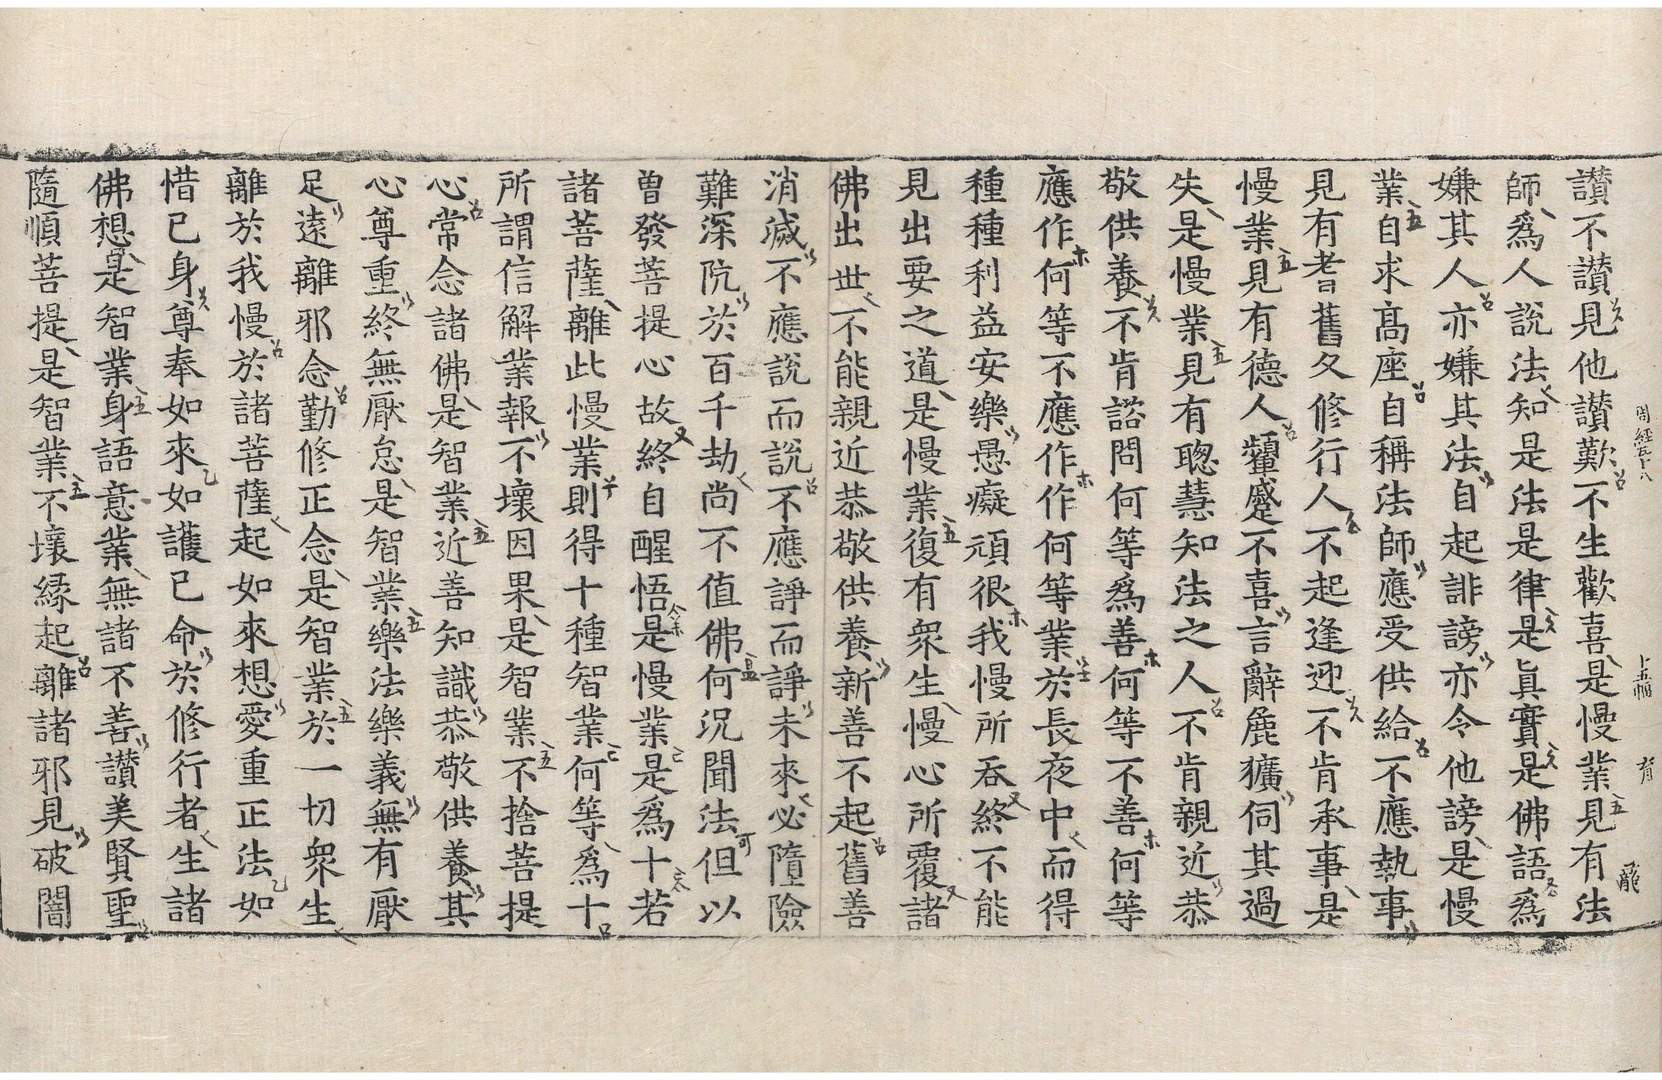 周經五十八
十五幅
育
龍
讃不讃見他讃歎不生歡喜是慢業見有法
師爲人說法知是法是律是眞實是佛語爲
嫌其人亦嫌其法自起誹謗亦令他謗是慢
業自求高座自稱法師應受供給不應執事
見有耆舊久修行人不起逢迎不肯承事是
慢業見有德人顰蹙不喜言辭麁獷伺其過
失是慢業見有聰慧知法之人不肯親近恭
敬供養不肯諮問何等爲善何等不善何等
應作何等不應作作何等業於長夜中而得
種種利益安樂愚癡頑很我慢所吞終不能
見出要之道是慢業復有衆生慢心所覆諸
佛出世不能親近恭敬供養新善不起舊善
消滅不應說而說不應諍而諍未來必墮險
難深阬於百千劫尚不值佛何況聞法但以
曽發菩提心故終自醒悟是慢業是爲十若
諸菩薩離此慢業則得十種智業何等爲十
所謂信解業報不壞因果是智業不捨菩提
心常念諸佛是智業近善知識恭敬供養其
心尊重終無厭怠是智業樂法樂義無有厭
足遠離邪念勤修正念是智業於一切衆生
離於我慢於諸菩薩起如來想愛重正法如
惜已身尊奉如來如護已命於修行者生諸
佛想是智業身語意業無諸不善讃美賢聖
隨順菩提是智業不壞縁起離諸邪見破闇